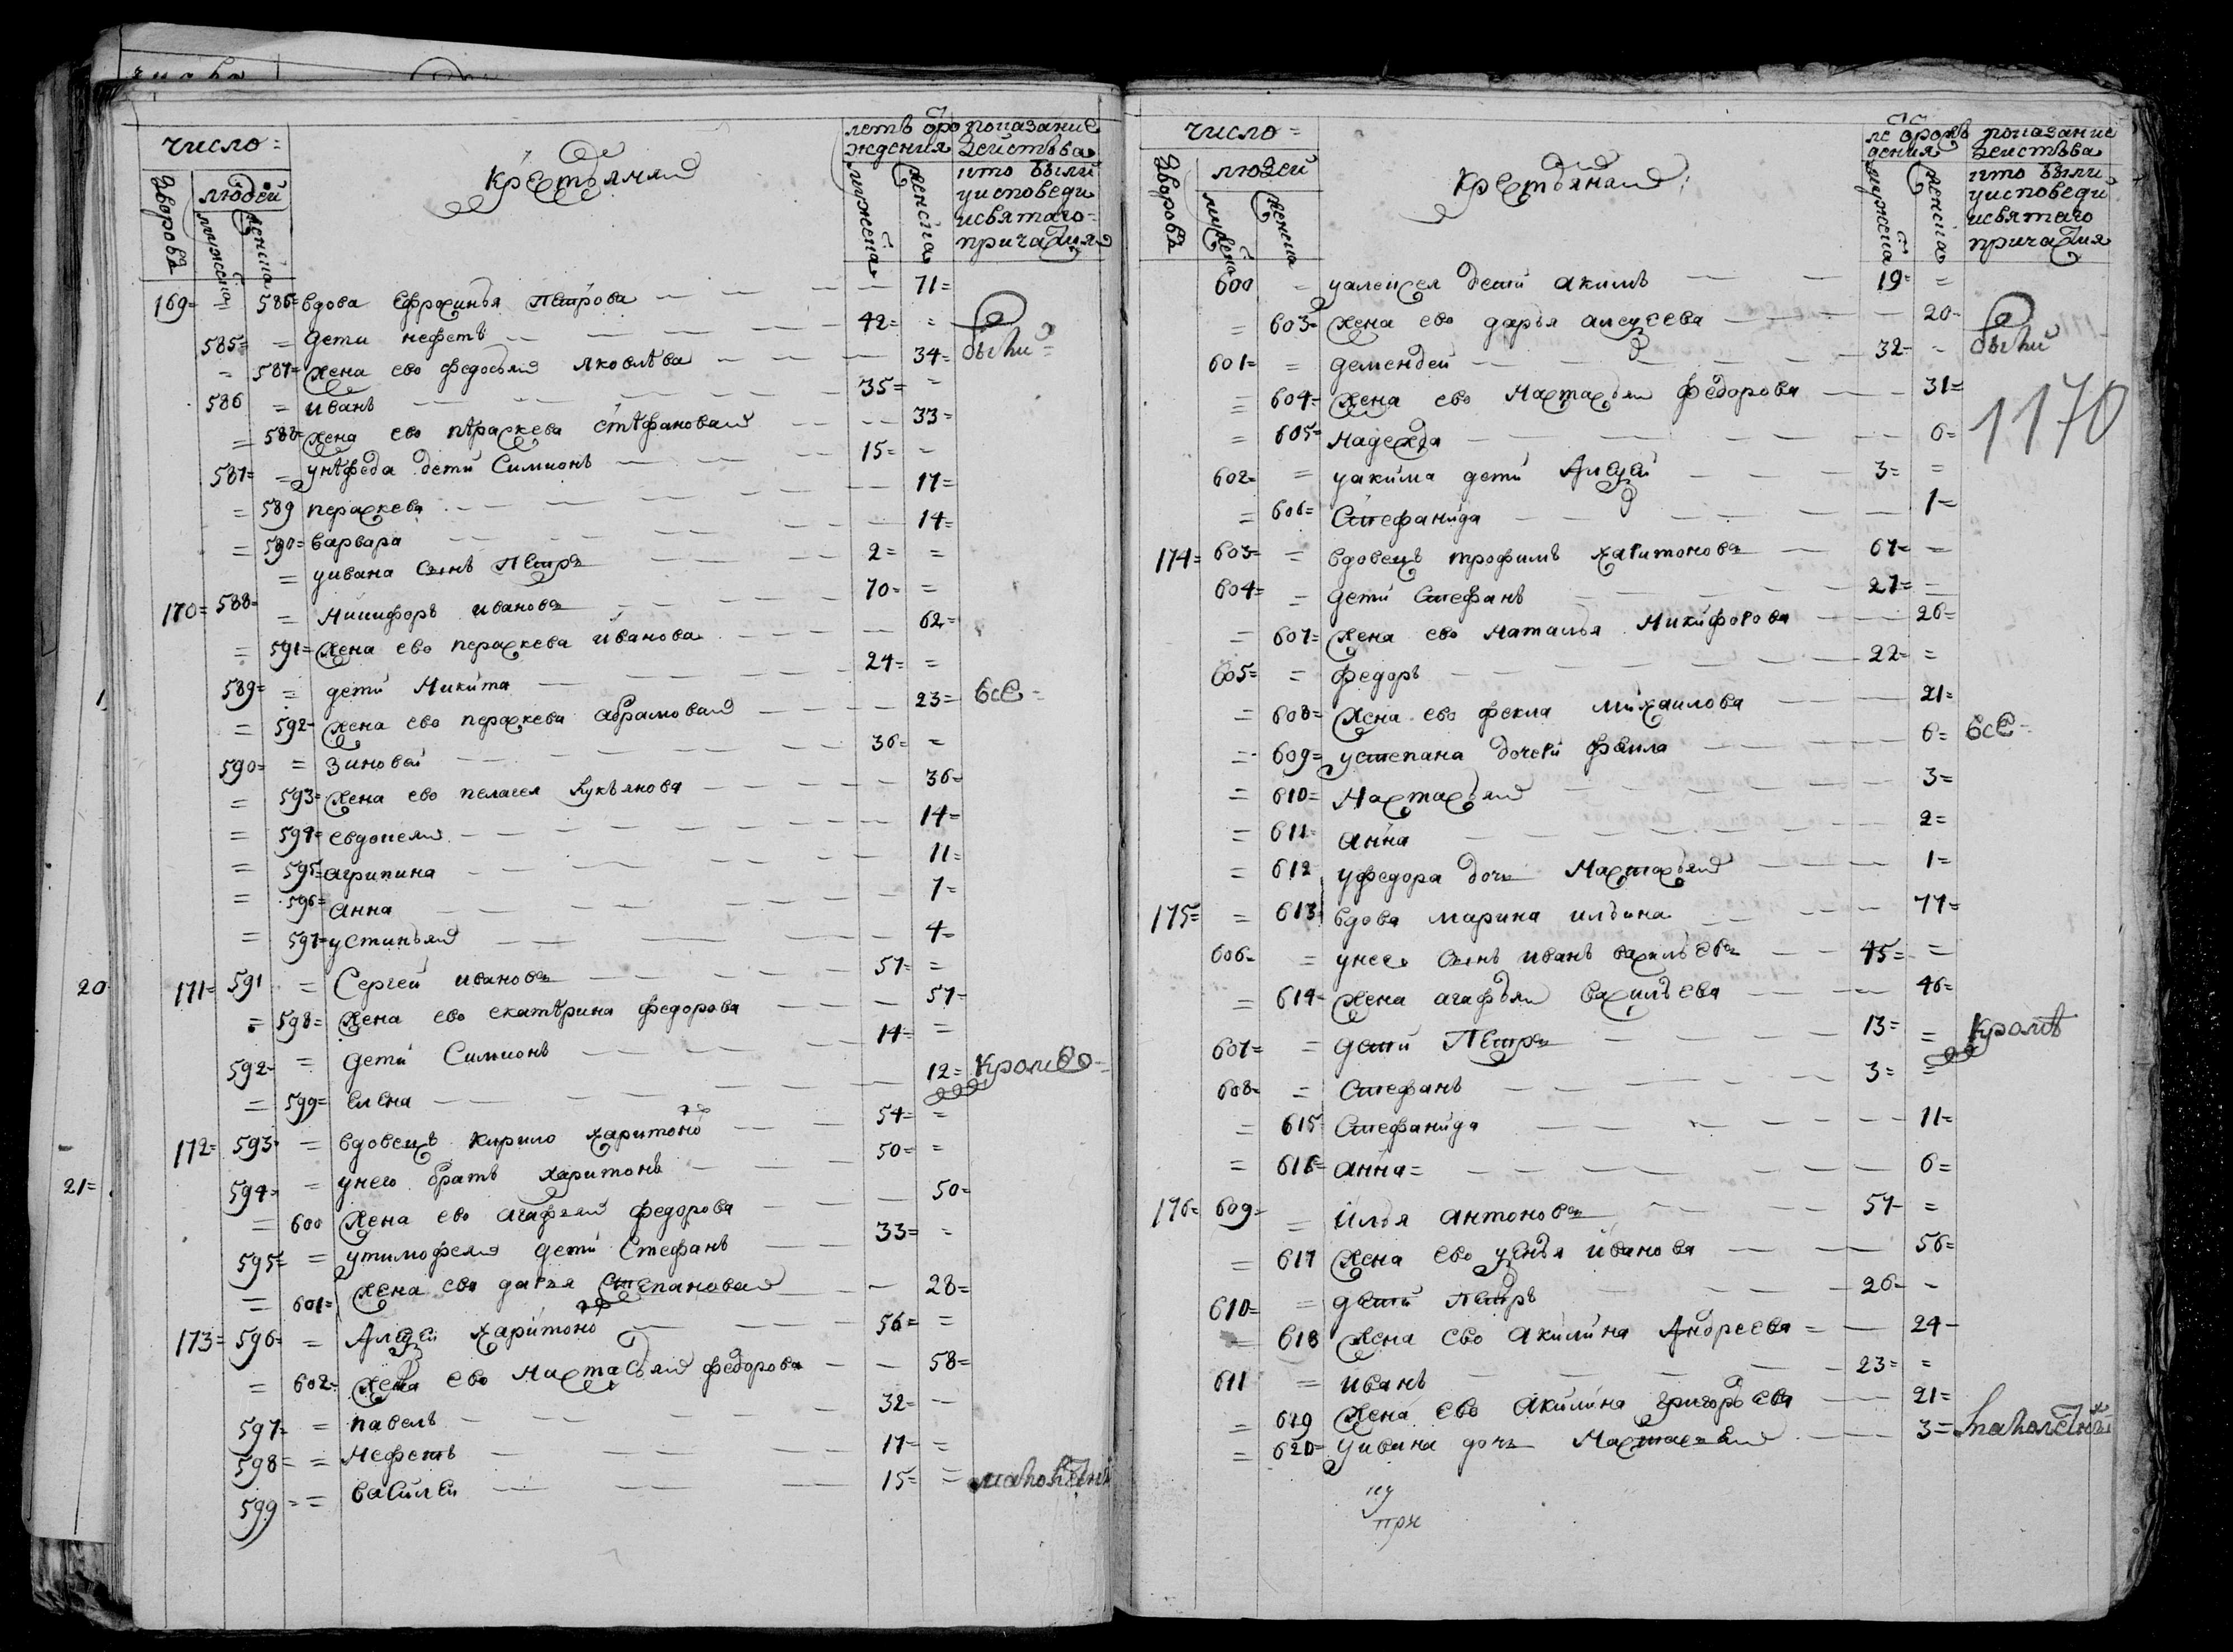 число =
людей
дворовъ
мужеска
женска
крестьяня
летъ ѿ ро
ждения
мужеска
женска
показание
действа
кто были
уисповеди
исвятаго =
причастия
169 = = 586 = вдова Ефросинья Петрова 71 =
585 = = дети нефетъ 42 = =
= 587 = жена ево федосья яковлѣва 34 = были =
586 = иванъ 35 = =
= 588 = жена ево пѣраскева стѣфанова 33 =
587 = = унѣфеда дети Симионъ 15 = =
= 589 пераскева 17 =
= 590 = варвара 14 =
= уивана сынъ Петръ 2 = =
170 = 588 = = Никифоръ ивановъ 70 = =
= 591 = жена ево пераскева иванова 62 =
589 = = дети Никита 24 = =
= 592 = жена ево пераскева абрамова 23 = все =
590 = = Зиновей 36 = =
= 593 = жена ево пелагея Лукьянова 36 =
= 594 = евдокея 14 =
= 595 = агрипина 11 =
= 596 = анна 7 =
= 597 = устинья 4 =
171 = 591 = Сергей ивановъ 57 = =
= 598 = жена ево екатѣрина федорова 57 =
592 = = дети Симионъ 14 = =
= 599 = елена 12 = кроме =
172 = 593 = = вдовецъ кирило харитоно 54 = =
594 = = унего братъ харитонъ 50 = =
= 600 жена ево агафья федорова 50 =
595 = = утимофея дети Стефанъ 33 = =
= 601 = жена ева дарья степанова 28 =
173 = 596 = = Алексей харитоно 56 = =
= 602 = жена ево Настасья федорова 58 =
597 = = павелъ 32 =
598 = = Нефетъ 17 = =
599 = = василеи 15 = = малолетныи
1
20
21 =
число =
людей
дворовъ
мужеска
женска
крестьяна
ле ѿ рож
дения
мужеска
женска
показание
действа
кто были
уисповеди
исвятаго
причастия
600 = уалексея дети акимъ 19 = =
= 603 = жена ево дарья алексеева 20 =
601 = = дементеи 32 = = были
= 604 = жена ево Настасья федорова 31 =
= 605 = надежда 6 =
1170
602 = = уакима дети Алексей 3 = =
= 606 = Стефанида 1 =
174 = 603 = = вдовецъ трофимъ харитоновъ 67 = =
604 = = дети стефанъ 27 = =
= 607 = жена ево наталья Никифорова 26 =
605 = = федоръ 22 = =
= 608 = жена ево фекла михаилова 21 =
= 609 = устепана дочери фекла 6 = все =
= 610 = Настасья 3 =
= 611 = анна 2 =
= 612 уфедора дочь Настасья 1 =
175 = = 613 вдова марина ильина 77 =
606 = = унее сынъ иванъ васильевъ 45 = =
= 614 = жена агафья васильева 46 =
607 = = дети Петръ 13 = = кромѣ
608 = = Стефанъ 3 = =
= 615 Стефанида 11 =
= 616 = анна = 6 =
176 = 609 = = илья антоновъ 57 = =
= 617 жена ево иванова 56 =
610 = = дети Петръ 26 = =
= 618 жена ево акилина Андреева = 24 =
611 = иванъ 23 = =
= 619 жена ево акилина григорьева 21 =
= 620 = уивана дочь Настасья 3 = малолетных